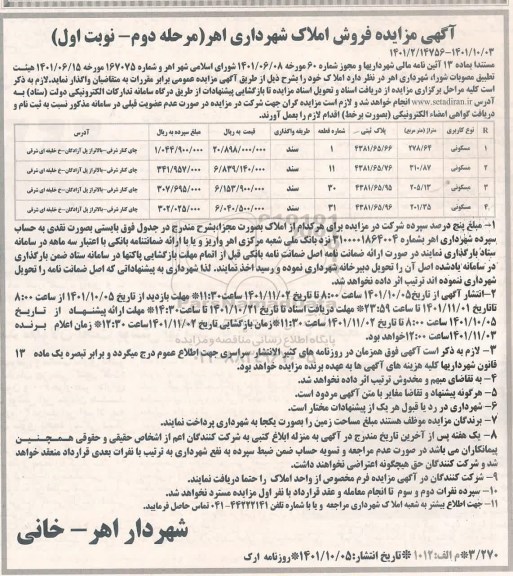 آگهی مزایده فروش املاک شهرداری اهر(مرحله دوم- نوبت اول)
۱۴۰۱/۲/۱۴۷۵۶-۱۴۰۱/۱۰/۰۳
مستندا بماده ۱۳ آئین نامه مالی شهرداریها و مجوز شماره ۶۰ مورخه ۱۴۰۱/۰۶/۰۸ شورای اسلامی شهر اهر و شماره ۱۶۷۰۷۵ مورخه ۱۴۰۱/۰۶/۱۵ هیئت
تطبیق مصوبات شورا، شهرداری اهر در نظر دارد املاک خود را بشرح ذیل از طریق آگهی مزایده عمومی برابر مقررات به متقاضیان واگذار نماید.لازم به ذکر
است کلیه مراحل برگزاری مزایده از دریافت اسناد و تحویل اسناد مزایده تا بازگشایی پیشنهادات از طریق درگاه سامانه تدارکات الکترونیکی دولت (ستاد) به
آدرس www.setadiran.ir انجام خواهد شد و لازم است مزایده گران جهت شرکت در مزایده در صورت عدم عضویت قبلی در سامانه مذکور نسبت به ثبت نام و
دریافت گواهی امضاء الکترونیکی (بصورت برخط) اقدام لازم را بعمل آورند.
R نوع کاربری متراژ (متر مربع) پلاک ثبتی شماره قطعه طریقه واگذاری قیمت به ریال مبلغ سپرده به ریال آدرس
۱ مسکونی ۲۷۸/۶۴ ۴۳۸۱/۶۵/۶۶ ۱ سند ۲۰/۸۹۸/۰۰۰/۰۰۰ ۱/۰۴۴/۹۰۰/۰۰۰ چای کنار شرقی-بالاتراز پل آزادگان-خ خلیفه ای شرقی
۲ مسکونی ۳۱۰/۸۷ ۴۳۸۱/۶۵/۷۶ ۱۱ سند ۶/۸۳۹/۱۴۰/۰۰۰ ۳۴۱/۹۵۷/۰۰۰ چای کنار شرقی-بالاتراز پل آزادگان-خ خلیفه ای شرقی
۳ مسکونی ۲۰۵/۱۳ ۴۳۸۱/۶۵/۹۵ ۳۰ سند ۶/۱۵۳/۹۰۰/۰۰۰ ۳۰۷/۶۹۵/۰۰۰ چای کنار شرقی-بالاتراز پل آزادگان-خ خلیفه ای شرقی
۴ مسکونی ۲۰۱/۳۵ ۴۳۸۱/۶۵/۹۶ ۳۱ سند ۶/۰۴۰/۵۰۰/۰۰۰ ۳۰۲/۰۲۵/۰۰۰ چای کنار شرقی-بالاتراز پل آزادگان-خ خلیفه ای شرقی
۱- مبلغ پنج درصد سپرده شرکت در مزایده برای هرکدام از املاک بصورت مجزا،بشرح مندرج در جدول فوق بایستی بصورت نقدی به حساب
سپرده شهرداری اهر بشماره ۳۱۰۰۰۰۱۸۶۴۰۰۴ نزد بانک ملی شعبه مرکزی اهر واریز و یا با ارائه ضمانتنامه بانکی با اعتبار سه ماهه در سامانه
ستاد بارگذاری نمایند در صورت ارائه ضمانت نامه اصل ضمانت نامه بانکی قبل از اتمام مهلت بازگشایی پاکتها در سامانه ستاد ضمن بارگذاری
در سامانه یادشده اصل آن را تحویل دبیرخانه شهرداری نموده و رسید اخذ نمایند. لذا شهرداری به پیشنهاداتی که اصل ضمانت نامه را تحویل
شهرداری ننموده اند ترتیب اثر داده نخواهد شد.
۲-انتشار آگهی از تاریخ۱۴۰۱/۱۰/۰۵ ساعت ۸:۰۰ تا تاریخ ۱۴۰۱/۱۱/۰۲ ساعت ۱۱:۳۰* مهلت بازدید از تاریخ ۱۴۰۱/۱۰/۰۵ از ساعت ۸:۰۰
تاتاریخ ۱۴۰۱/۱۱/۰۱ تا ساعت ۲۳:۵۹* مهلت دریافت اسناد تا تاریخ ۱۴۰۱/۱۰/۲۱ تا ساعت ۱۴:۳۰* مهلت ارائه پیشنهاد از تاریخ
۱۴۰۱/۱۰/۰۵ ساعت ۸:۰۰ تا تاریخ ۱۴۰۱/۱۱/۰۲ ساعت ۱۱:۳۰ *زمان بازگشایی تاریخ ۱۴۰۱/۱۱/۰۲ساعت ۱۲:۳۰* زمان اعلام برنده
۱۴۰۱/۱۱/۰۳ساعت ۱۲:۰۰خواهد بود.
۳- لازم به ذکر است آگهی فوق همزمان در روزنامه های کثیر الانتشار، سراسری جهت اطلاع عموم درج میگردد و برابر تبصره یک ماده ۱۳
قانون شهرداریها کلیه هزینه های آگهی ها به عهده برنده مزایده خواهد بود.
۴- به تقاضای مبهم و مخدوش ترتیب اثر داده نخواهد شد.
۵- هرگونه پیشنهاد و تقاضا مغایر با متن آگهی مردود است.
۶- شهرداری در رد یا قبول هر یک از پیشنهادات مختار است.
۷- برندگان مزایده موظف هستند مبلغ مساحت زمین را بصورت یکجا به شهرداری پرداخت نمایند.
۸- یک هفته پس از آخرین تاریخ مندرج در آگهی به منزله ابلاغ کتبی به شرکت کنندگان اعم از اشخاص حقیقی و حقوقی همچنین
پیمانکاران می باشد در صورت عدم مراجعه و تسویه حساب ضمن ضبط سپرده به نفع شهرداری به ترتیب با نفرات بعدی قرارداد منعقد خواهد
شد و شرکت کنندگان حق هیچگونه اعتراضی نخواهند داشت.
۹- شرکت کنندگان در آگهی مزایده فرم مخصوص از واحد املاک را حتما دریافت نمایند.
۱۰- سپرده نفرات دوم و سوم تا انجام معامله و عقد قرارداد با نفر اول مزایده مسترد نخواهد شد.
۱۱- جهت اطلاع بیشتر به شعبه املاک شهرداری مراجعه و یا با شماره تلفن ۴۴۲۲۲۱۴۱-۰۴۱ تماس حاصل فرمایید.
شهردار اهر- خانی
۳/۲۷۰*م الف:۱۰۱۲ *تاریخ انتشار:۱۴۰۱/۱۰/۰۵*روزنامه ارک